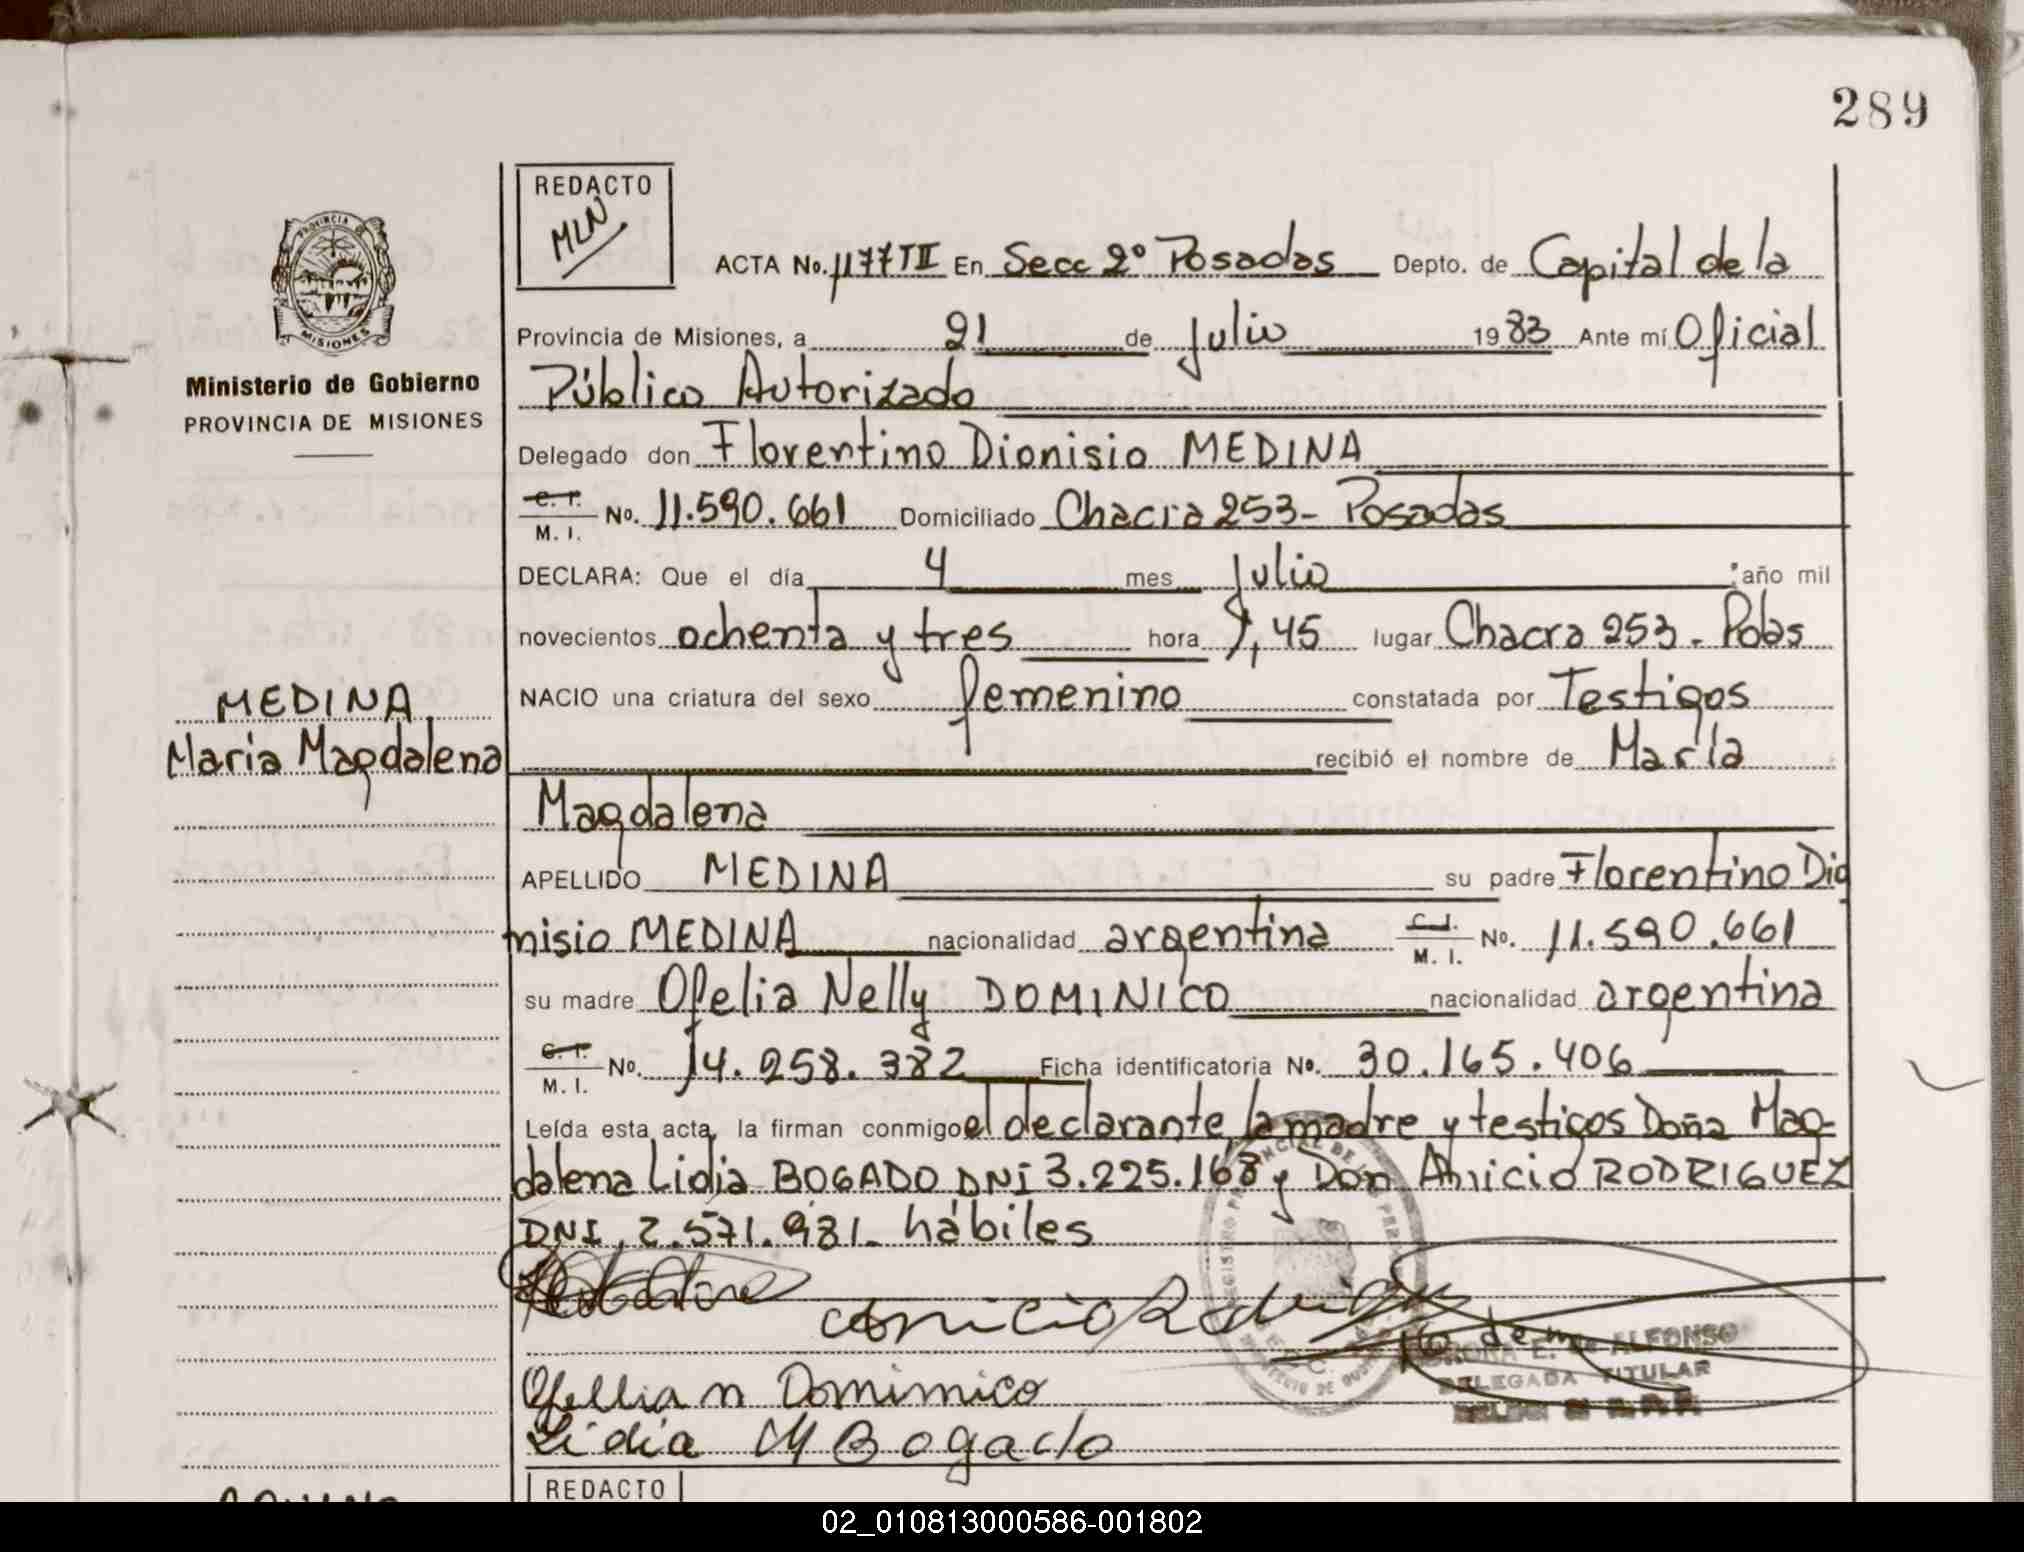 289
REDACTO
MLN
ACTA No. 1177 TII En Secc 2º Posadas Depto. de Capital de la
Provincia de Misiones, a 21 de Julio 1983 Ante mí Oficial
Público Autorizado
Delegado don Florentino Dionisio MEDINA
C. I. M. I. No. 11.590.661 Domiciliado Chacra 253- Posadas
DECLARA: Que el día 4 mes Julio año mil
novecientos ochenta y tres hora 7,45 lugar Chacra 253- Pdas
NACIO una criatura del sexo femenino constatada por Testigos
recibió el nombre de María
Magdalena
APELLIDO MEDINA su padre Florentino Dio
nisio MEDINA nacionalidad argentina C. I. M. I. No. 11.590.661
su madre Ofelia Nelly DOMINICO nacionalidad argentina
C. I. M. I. No. 14.258.382 Ficha identificatoria No. 30.165.406
Leída esta acta, la firman conmigo el declarante, la madre y testigos Doña Mag-
dalena Lidia BOGADO DNI 3.225.168 y Don Anicio RODRIGUEZ
DNI. 2.571.981. hábiles
Anicio Rodriguez
Ofellia n Domimico
Lidia M Bogado
E. de ALFONSO
DELEGADA TITULAR
PROVINCIA DE
MISIONES
Ministerio de Gobierno
PROVINCIA DE MISIONES
MEDINA
Maria Magdalena
REDACTO
02_010813000586-001802